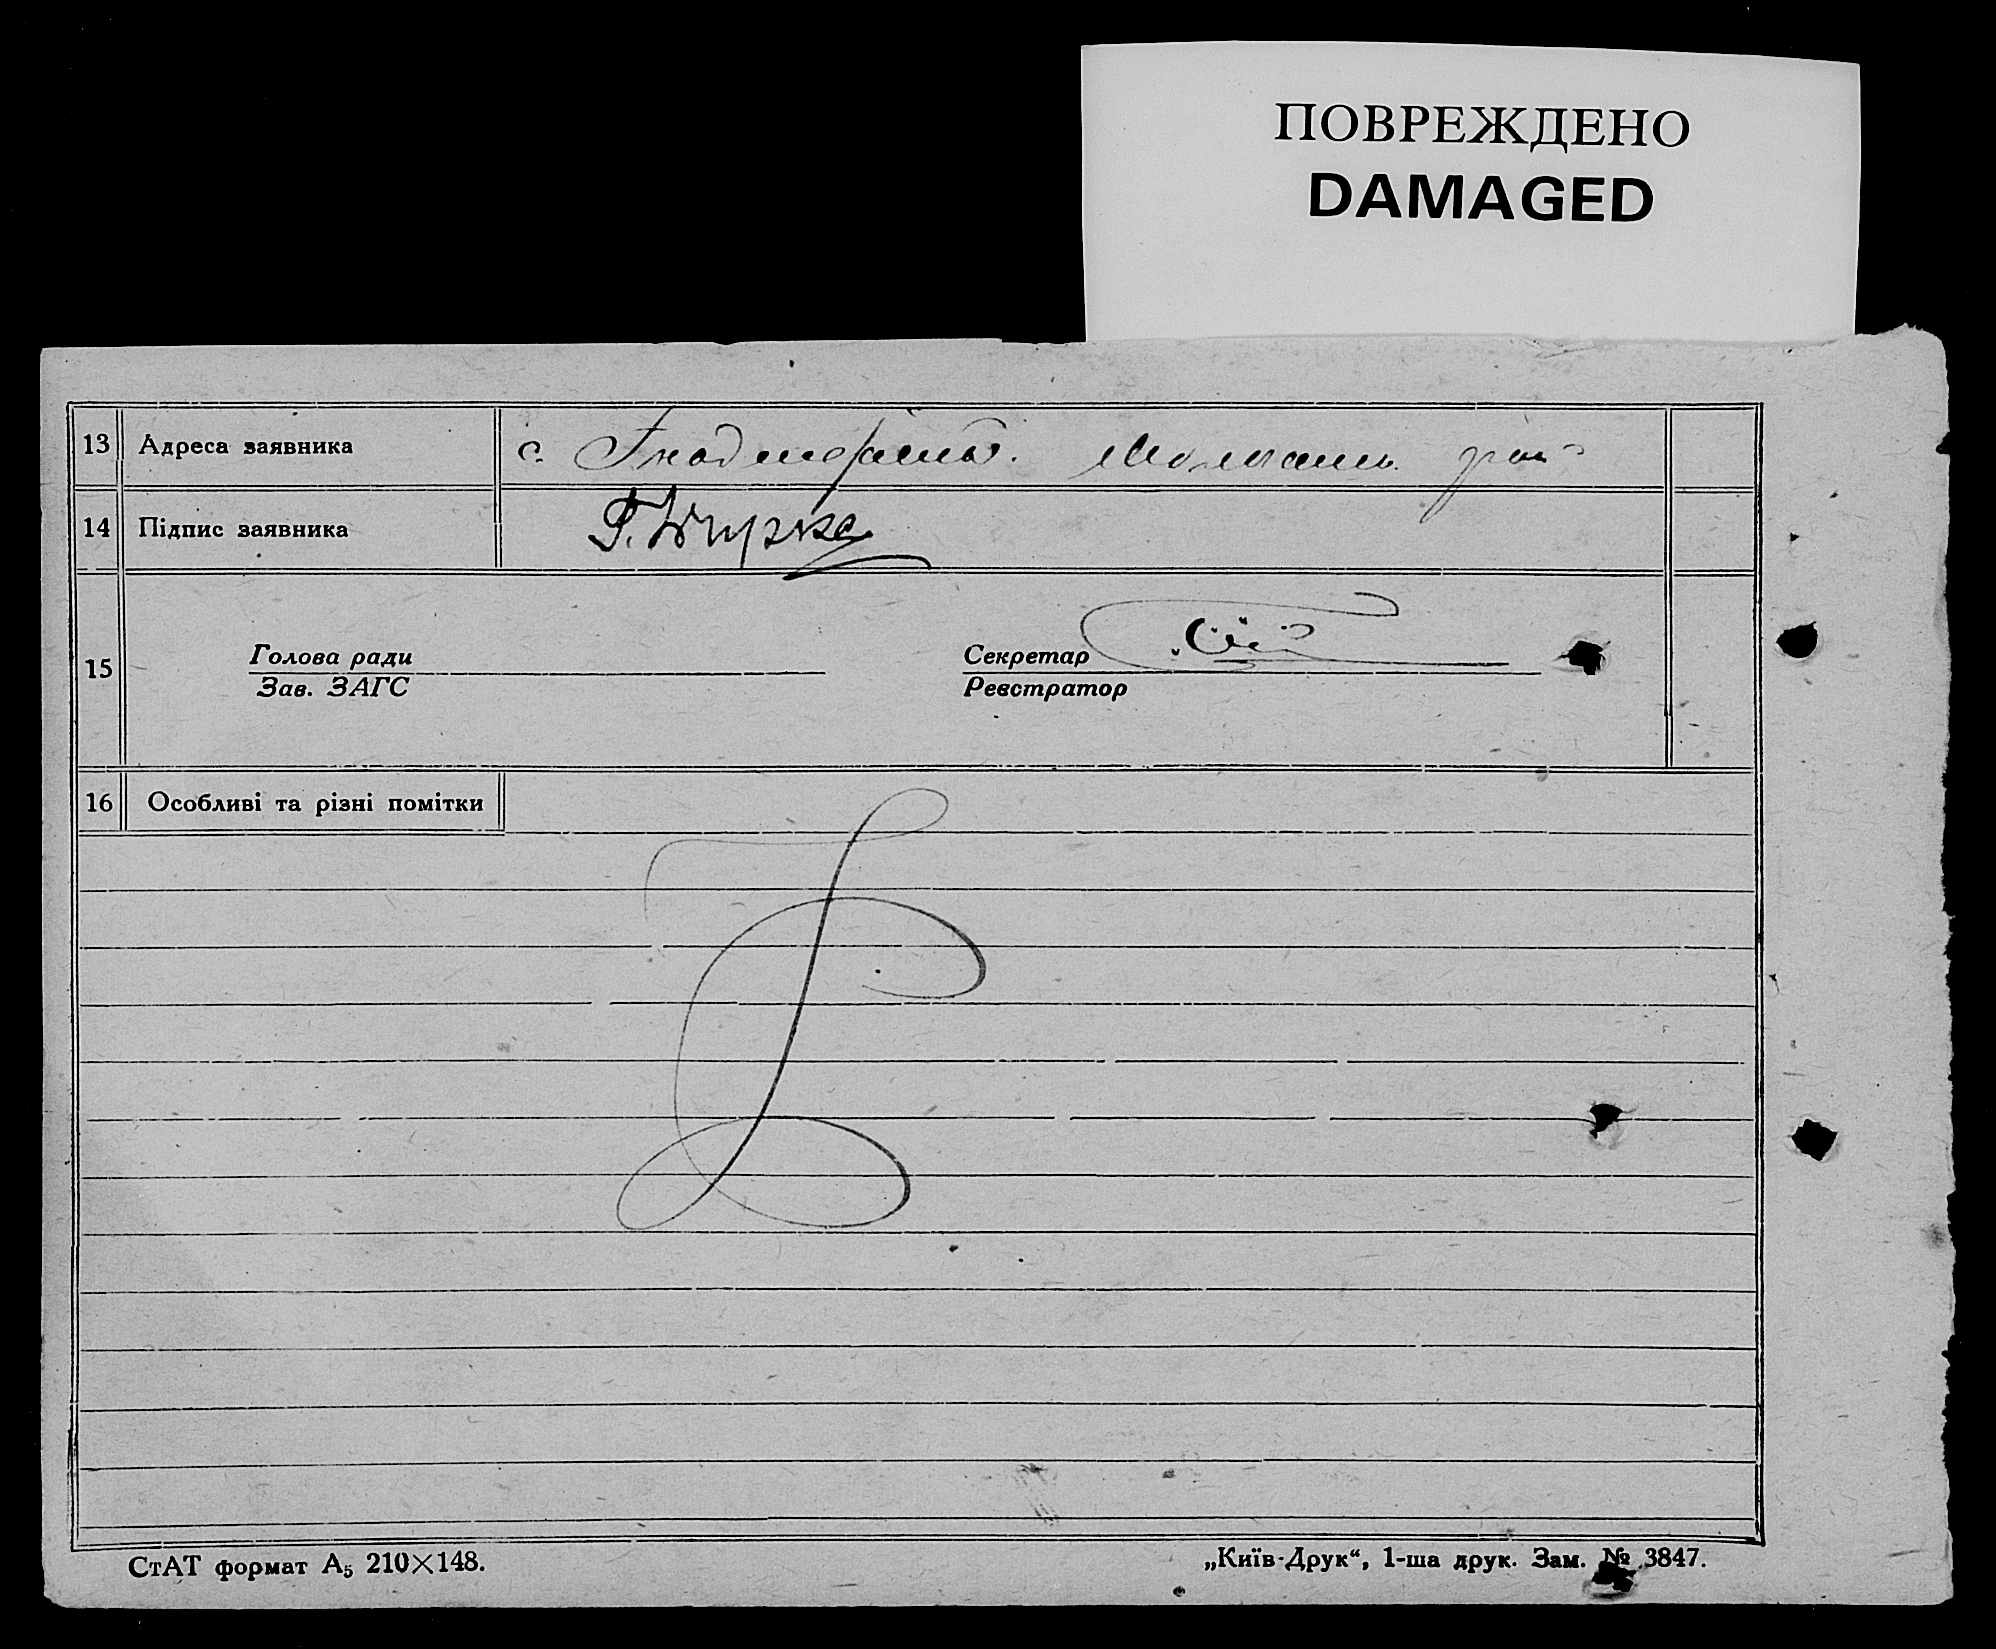 ПОВРЕЖДЕНО
DAMAGED
13 Адреса заявника с.
14 Підпис заявника
15 Голова ради Секретар
Зав. ЗАГС Реєстратор
16 Особливі та різні помітки
СтАТ формат А5 210×148. „Київ-Друк“, 1-ша друк. Зам. № 3847.